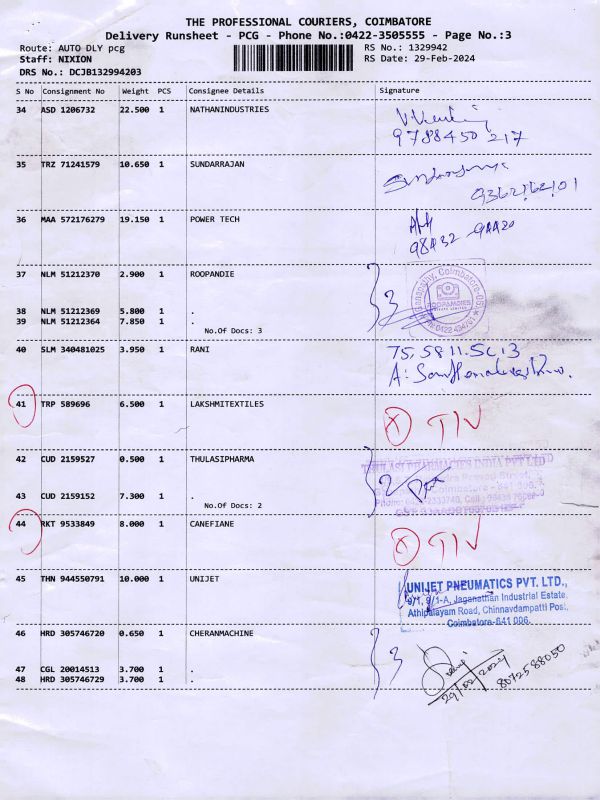 THE PROFESSIONAL COURIERS, COIMBATORE
Delivery Runsheet - PCG - Phone No.:0422-3505555 - Page No.:3
Route: AUTO DLY pcg RS No.: 1329942
Staff: NIXION RS Date: 29-Feb-2024
DRS No.: DCJB132994203
S No Consignment No Weight PCS Consignee Details Signature
34 ASD 1206732 22.500 1 NATHANINDUSTRIES
9788450 217
35 TRZ 71241579 10.650 1 SUNDARRAJAN
36 MAA 572176279 19.150 1 POWER TECH
98432 94420
37 NLM 51212370 2.900 1 ROOPANDIE
38 NLM 51212369 5.800 1 . 3
39 NLM 51212364 7.850 1 .
No.Of Docs: 3
40 SLM 340481025 3.950 1 RANI
41 TRP 589696 6.500 1 LAKSHMITEXTILES X TIV
42 CUD 2159527 0.500 1 THULASIPHARMA
THULASI PHARMACIES INDIA PVT LTD
43 CUD 2159152 7.300 1 . 2
No.Of Docs: 2
44 RKT 9533849 8.000 1 CANEFIANE X TIV
45 THN 944550791 10.000 1 UNIJET
UNIJET PNEUMATICS PVT. LTD.,
9/1, 9/1-A, Jaganathan Industrial Estate,
Athipalayam Road, Chinnavdampatti Post,
Coimbatore-641 006.
46 HRD 305746720 0.650 1 CHERANMACHINE
3
47 CGL 20014513 3.700 1 .
48 HRD 305746729 3.700 1 .
29/02/2024
8072588050